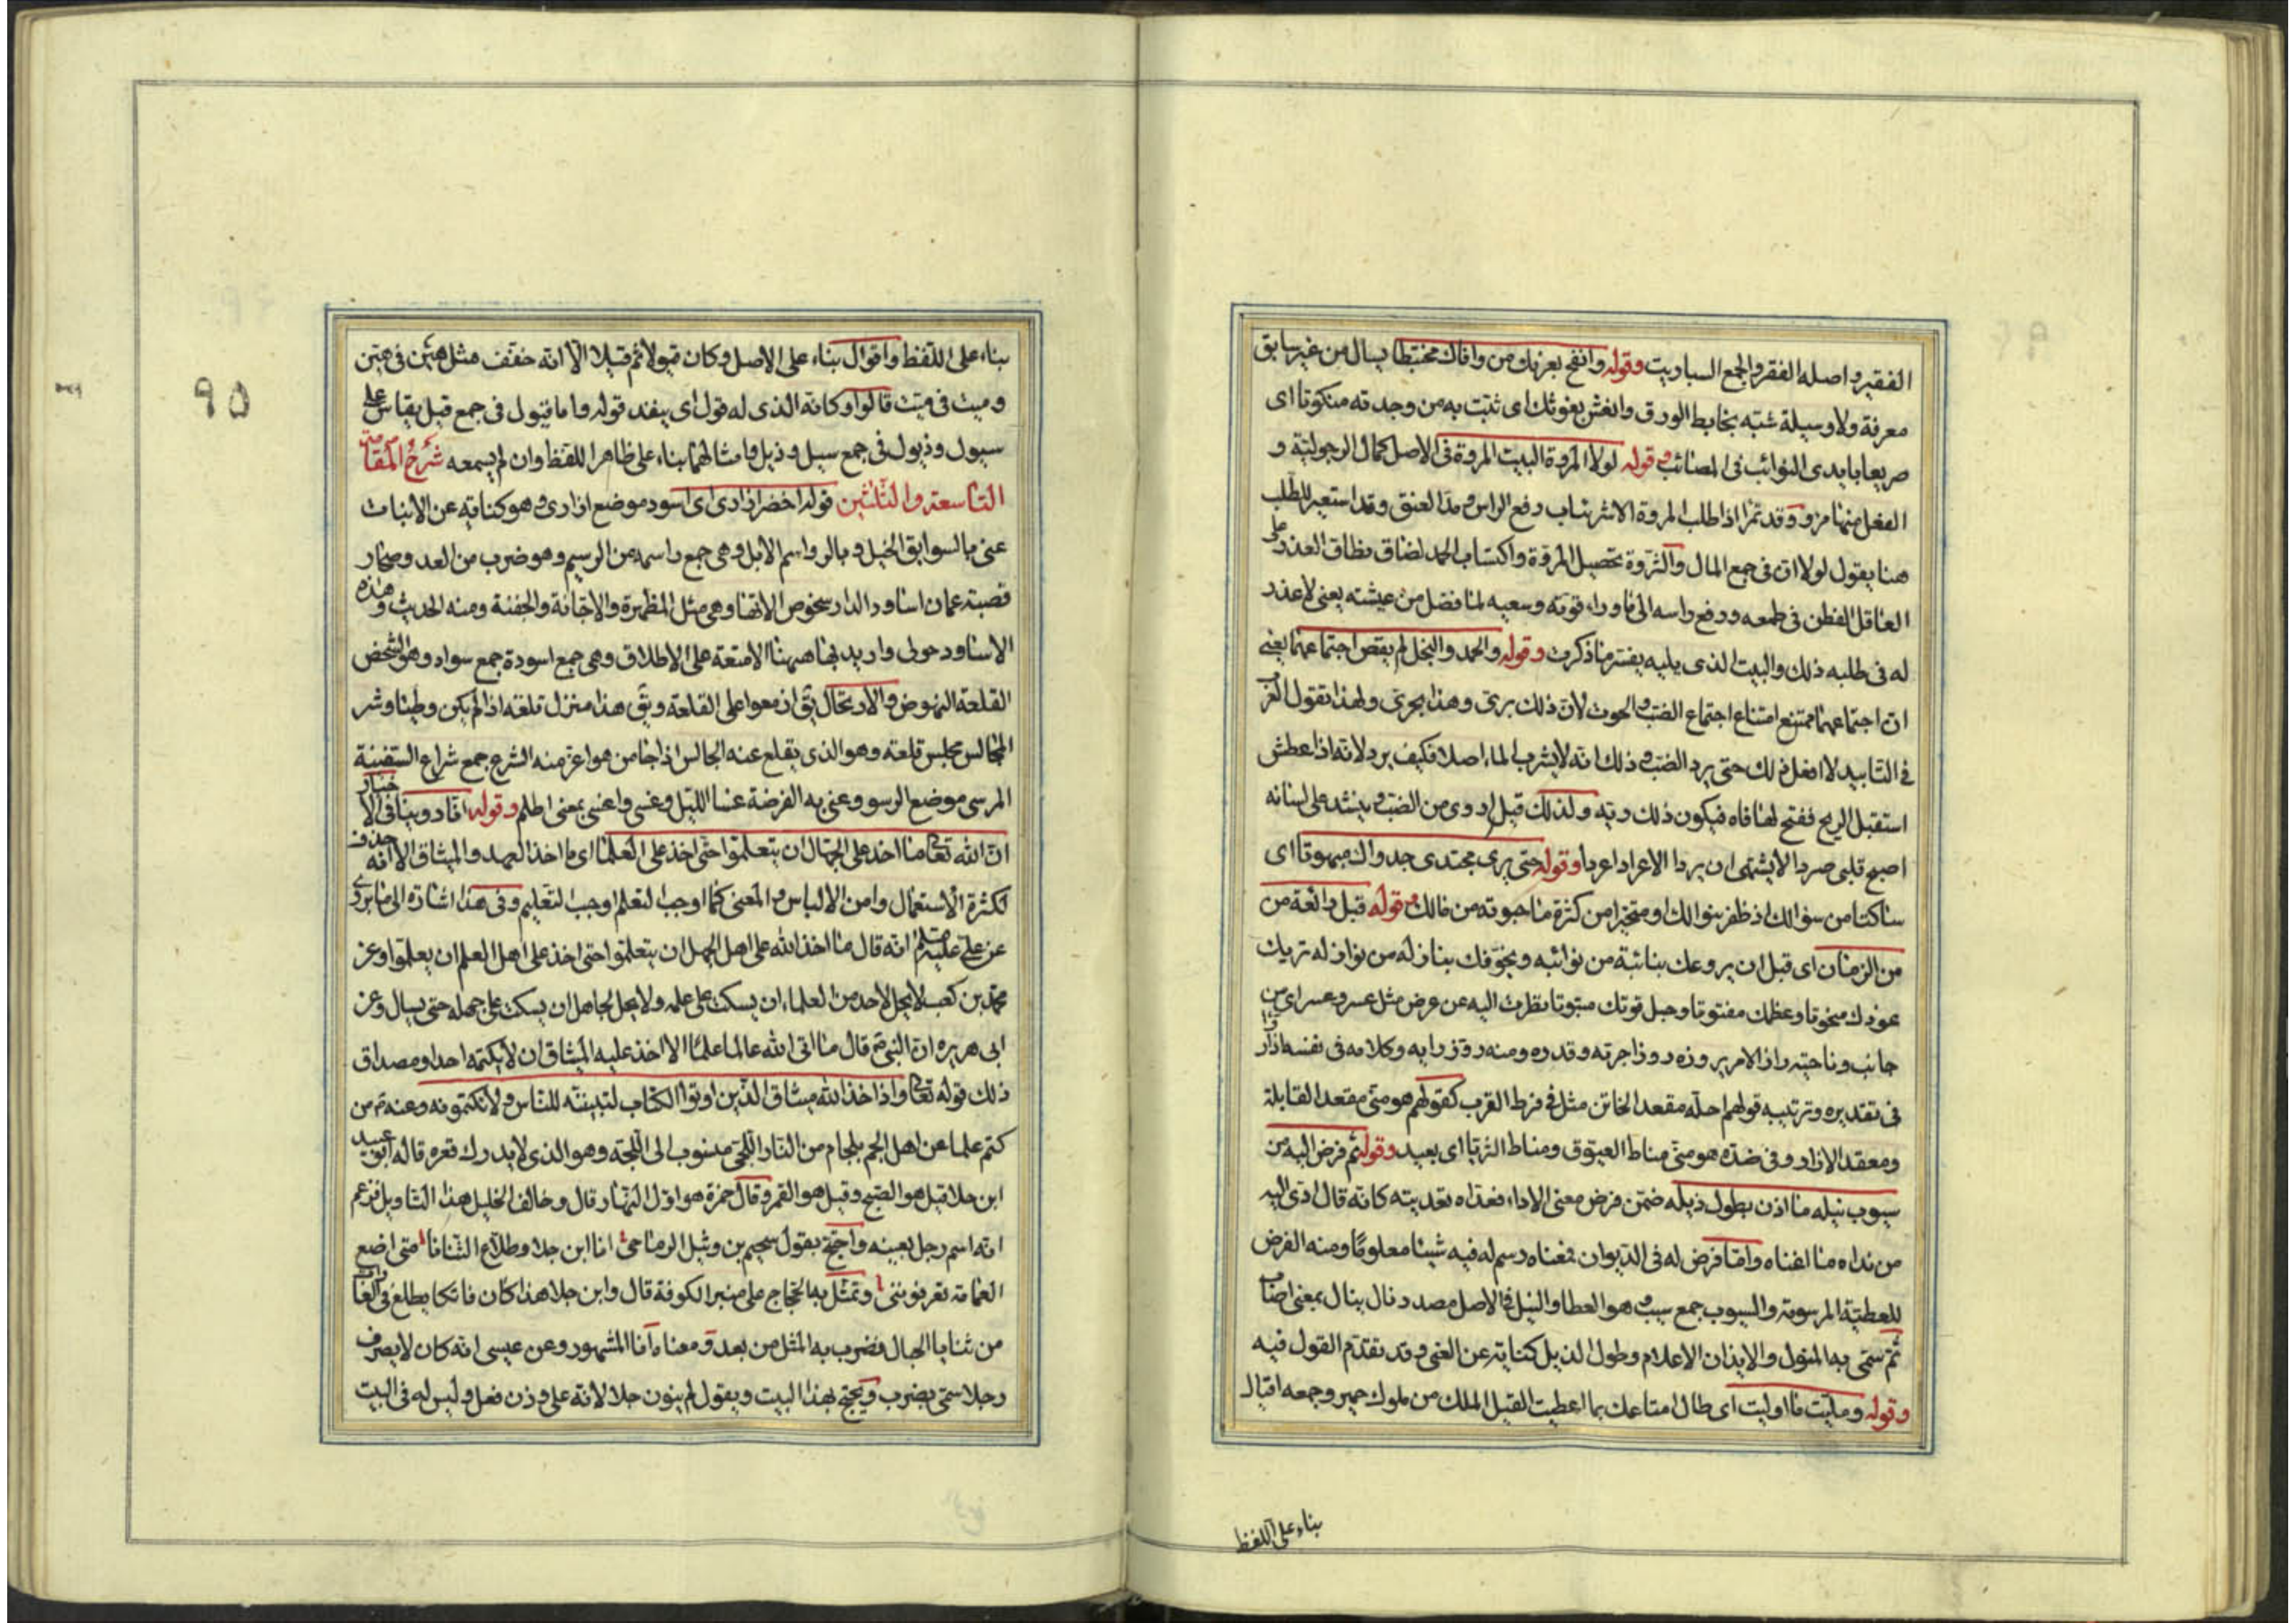 الفقير واصله الفقر والجمع السباريت وقوله وانفح بعرفك من وافاك مختبطا يسال من غير سابق
معرفة ولا وسيلة شبّه بخابط الورق وانعش بغوثك اى ثبّت به من وجدته منكوتا اى
صريعا بايدى النوائب فى المصائب وقوله لولا المروة البيت المروة فى الاصل كمال الرجولية و
الفعل منها مرؤ وقد تمرّا اذا طلب المروة الاشرئباب رفع الراس ومدّ العنق وقد استعير للطلب
هنا يقول لولا ان فى جمع المال والثروة تحصيل المروّة واكتساب الحمد لضاق نطاق العذر على
العاقل الفطن فى طمعه ورفع راسه الى ما وراء قوته وسعيه لما فضل من عيشته يعنى لا عذر
له فى طلبه ذلك والبيت الذى يليه يفسّر ما ذكرت وقوله والحمد والبخل لم يقض اجتماعهما يعنى
ان اجتماعهما ممتنع امتناع اجتماع الضبّ والحوت لانّ ذلك برىّ وهذا بحرىّ ولهذا تقول العرب
فى التابيد لا افعل ذلك حتى يرد الضبّ وذلك انه لا يشرب الماء اصلا فكيف يرد لانه اذا عطش
استقبل الريح ففتح لها فاه فيكون ذلك ريّه ولذلك قيل اروى من الضبّ وينشد على لسانه
اصبح قلبى صردا لا يشتهى ان يردا الا عرادا عردا وقوله حتى يرى مجتدى جدواك مبهوتا اى
ساكتا من سؤالك اذ ظفر بنوالك او متحيرا من كثرة ما حبوته من مالك وقوله قبل رائعة من
من الزمان اى قبل ان يروعك بنائبة من نوائبه ويخوّفك بنازلة من نوازله تريك
عودك منحوتا وعظمك مفتوتا وحبل قوتك مبتوتا نظرت اليه عن عرض مثل عسر وعسر اى من
جانب وناحية راز الامر يروزه روزا جربه وقدره ومنه روّز رايه وكلامه فى نفسه اذا
فى تقديره وترتيبه قولهم احلّه مقعد الخاتن مثل فى فرط القرب كقولهم هو منّى مقعد القابلة
ومعقد الازار وفى ضدّه هو منّى مناط العيّوق ومناط الثريا اى بعيد وقوله ثم فرض اليه من
سيوب نيله ما اذن بطول ذيله ضمّن فرض معنى الاداء فعدّاه تعديته كانه قال ادّى اليه
من نداه ما اغناه وامّا فرض له فى الديوان فمعناه رسم له فيه شيئا معلومًا ومنه الفرض
للعطيّة المرسومة والسيوب جمع سيب وهو العطا والنيل فى الاصل مصدر نال ينال بمعنى اصاب
ثمّ سمّى به المنول والايذان الاعلام وطول الذيل كناية عن الغنى وقد تقدّم القول فيه
وقوله ومليّت ما اوليت اى طال امتاعك بما اعطيت القيل الملك من ملوك حمير وجمعه اقيال
بناء على اللفظ
95
بناء على اللفظ واقوال بناء على الاصل وكان قيولا ثم قيلا الا انه خفّف مثل هيّن فى هين
وميت فى ميّت قالوا وكانه الذى له قول اى ينفذ قوله واما قيول فى جمع قيل يقاس على
سيول وذيول فى جمع سيل وذيل وامثالهما بناء على ظاهر اللفظ وان لم يسمعه شرح المقامة
التاسعة والثلثين قوله اخضر ازارى اى اسود موضع ازارى وهو كناية عن الانبات
عنى بالسوابق الخيل وبالرواسم الابل وهى جمع راسمة من الرسيم وهو ضرب من العدو وصحار
قصبة عمان اساود الدار شخوص الاتها وهى مثل المطهرة والاجّانة والجفنة ومنه الحديث وهذه
الاساود حولى واريد بها ههنا الامتعة على الاطلاق وهى جمع اسودة جمع سواد وهو الشخص
القلعة النهوض والارتحال يق ازمعوا على القلعة ويق هذا منزل قلعة اذا لم يكن وطيئا وشر
المجالس مجلس قلعة وهو الذى يقلع عنه الجالس اذا جا من هو اعز منه الشرع جمع شراع السفينة
المرسى موضع الرسو وعنى به الفرضة عسا الليل وغسى واغسى بمعنى اظلم وقوله انا روينا فى الاخبار
ان الله تعالى ما اخذ على الجهال ان يتعلّموا حتّى اخذ على العلما اى ما اخذ العهد والميثاق الا انه حذف
لكثرة الاستعمال وامن الالباس والمعنى كما اوجب التعلم اوجب التعليم وفى هذا اشارة الى ما يروى
عن علىّ عليه السلم انه قال ما اخذ الله على اهل الجهل ان يتعلّموا حتى اخذ على اهل العلم ان يعلّموا وعن
محمّد بن كعب لا يحل لاحد من العلماء ان يسكت على علمه ولا يحل لجاهل ان يسكت على جهله حتى يسال وعن
ابى هريره ان النبى ص قال ما اتى الله عالما علمًا الا اخذ عليه الميثاق ان لا يكتمه احدا ومصداق
ذلك قوله تعالى واذا اخذ الله ميثاق الذين اوتوا الكتاب لتبيننّه للناس ولا تكتمونه وعنه ص من
كتم علما عن اهل الجم بلجام من النار اللّجّى منسوب الى اللّجة وهو الذى لا يدرك قعره قاله ابو عبيد
ابن جلا قيل هو الصبح وقيل هو القمر وقال حمزة هو اوّل النهار قال وخالف الخليل هذا التاويل فزعم
انه اسم رجل بعينه واحتج بقول سحيم بن وثيل الرياحى انا ابن جلا وطلاع الثنايا متى اضع
العمامة تعرفونى وتمثّل به الحجاج على منبر الكوفة قال وابن جلا هذا كان فاتكا يطلع فى الغارات
من ثنايا الجبال فضرب به المثل من بعد ومعناه انا المشهور وعن عيسى انه كان لا يصرف
رجلا سمّى بضرب ويحتج بهذا البيت ويقول لم ينون جلا لانه على وزن فعل وليس له فى البيت